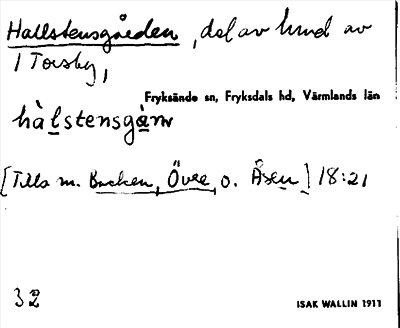 Hallstensgården, del av hmd av
1 Torsby,
Fryksände sn, Fryksdals hd, Värmlands län
hàlstensgàɳ
[Tills m. Backen, Övre, o. Åsen] 18:21
32
ISAK WALLIN 1911